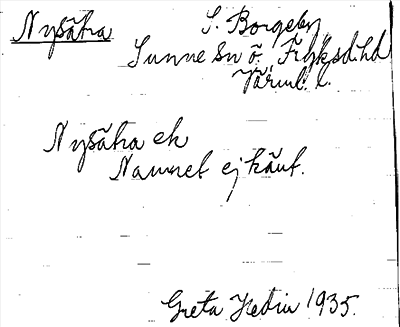 Nysätra
S. Borgeby
Sunne sn Ö. Fryksd. hd
Värml. l.
Nysätra ek
Namnet ej känt.
Greta Hedin 1935.